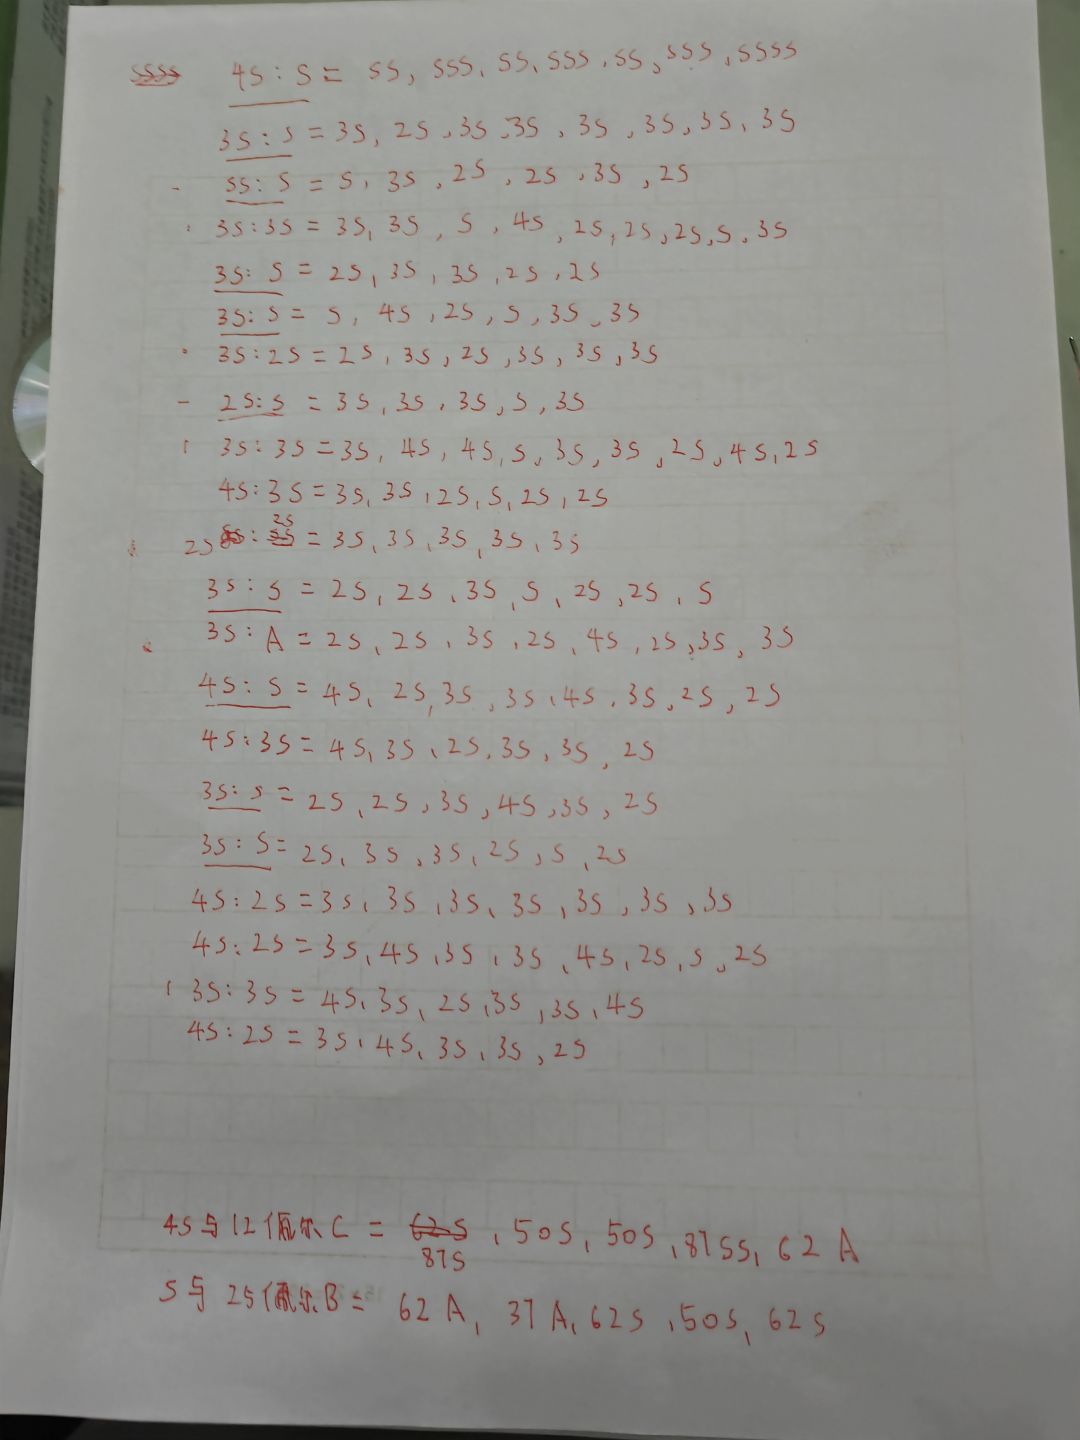 4S : S = SS, SSS, SS, SSS, SS, SSS, SSSS
3S : S = 3S, 2S, 3S, 3S, 3S, 3S, 3S, 3S
- SS : S = S, 3S, 2S, 2S, 3S, 2S
3S : 3S = 3S, 3S, S, 4S, 2S, 2S, 2S, S, 3S
3S : S = 2S, 3S, 3S, 2S, 2S
3S : S = S, 4S, 2S, S, 3S, 3S
3S : 2S = 2S, 3S, 2S, 3S, 3S, 3S
- 2S : S = 3S, 3S, 3S, S, 3S
3S : 3S = 3S, 4S, 4S, S, 3S, 3S, 2S, 4S, 2S
4S : 3S = 3S, 3S, 2S, S, 2S, 2S
2S : 2S = 3S, 3S, 3S, 3S, 3S
3S : S = 2S, 2S, 3S, S, 2S, 2S, S
3S : A = 2S, 2S, 3S, 2S, 4S, 2S, 3S, 3S
4S : S = 4S, 2S, 3S, 3S, 4S, 3S, 2S, 2S
4S : 3S = 4S, 3S, 2S, 3S, 3S, 2S
3S : S = 2S, 2S, 3S, 4S, 3S, 2S
3S : S = 2S, 3S, 3S, 2S, S, 2S
4S : 2S = 3S, 3S, 3S, 3S, 3S, 3S, 3S
4S : 2S = 3S, 4S, 3S, 3S, 4S, 2S, S, 2S
3S : 3S = 4S, 3S, 2S, 3S, 3S, 4S
4S : 2S = 3S, 4S, 3S, 3S, 2S
4S与12佩尔C = 87S, 50S, 50S, 87SS, 62A
S与2S佩尔B = 62A, 37A, 62S, 50S, 62S